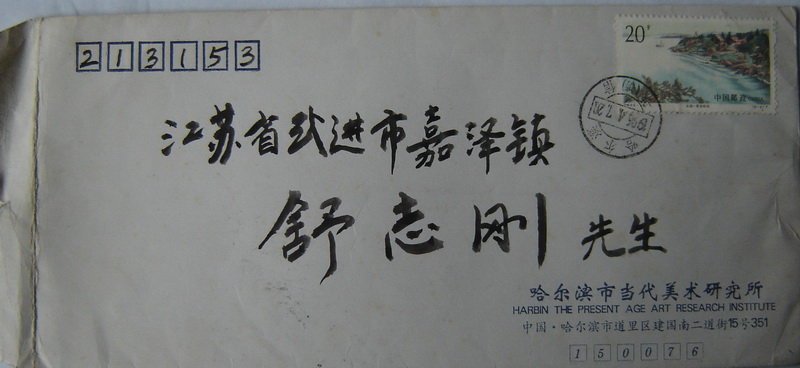 213153
20分
中国邮政
哈尔滨
1996.4.7.20
江苏省武进市嘉泽镇
舒志刚 先生
哈尔滨市当代美术研究所
HARBIN THE PRESENT AGE ART RESEARCH INSTITUTE
中国·哈尔滨市道里区建国南二道街15号351
150076